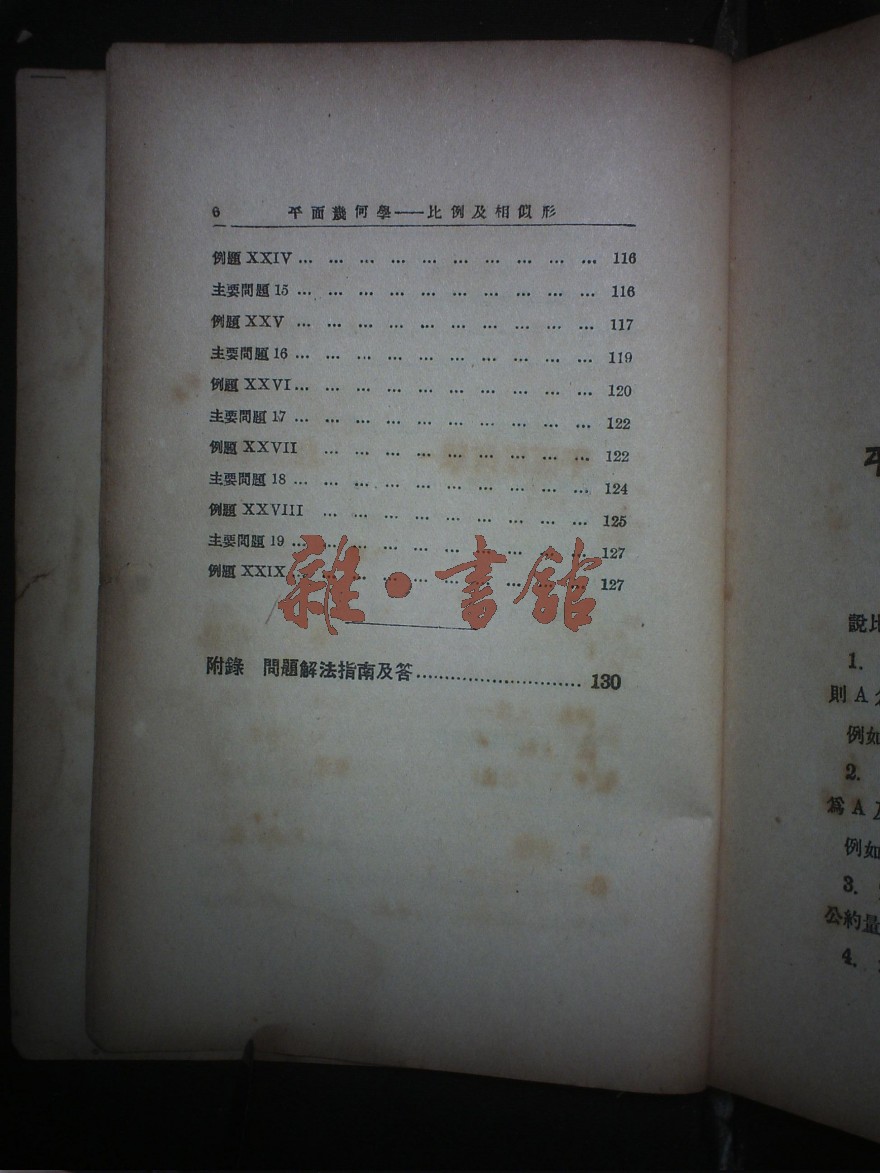 6 平面幾何學——比例及相似形
例題 XXIV ... ... ... ... ... ... ... ... ... ... 116
主要問題 15 ... ... ... ... ... ... ... ... ... ... 116
例題 XXV ... ... ... ... ... ... ... ... ... ... 117
主要問題 16 ... ... ... ... ... ... ... ... ... ... 119
例題 XXVI ... ... ... ... ... ... ... ... ... ... 120
主要問題 17 ... ... ... ... ... ... ... ... ... ... 122
例題 XXVII ... ... ... ... ... ... ... ... ... 122
主要問題 18 ... ... ... ... ... ... ... ... ... ... 124
例題 XXVIII ... ... ... ... ... ... ... ... ... 125
主要問題 19 ... ... ... ... ... ... ... ... ... ... 127
例題 XXIX ... ... ... ... ... ... ... ... ... ... 127
雜·書館
附錄 問題解法指南及答 ........................... 130
說比
1.
則 A
例如
2.
爲 A 及
例如
3.
公約量
4.